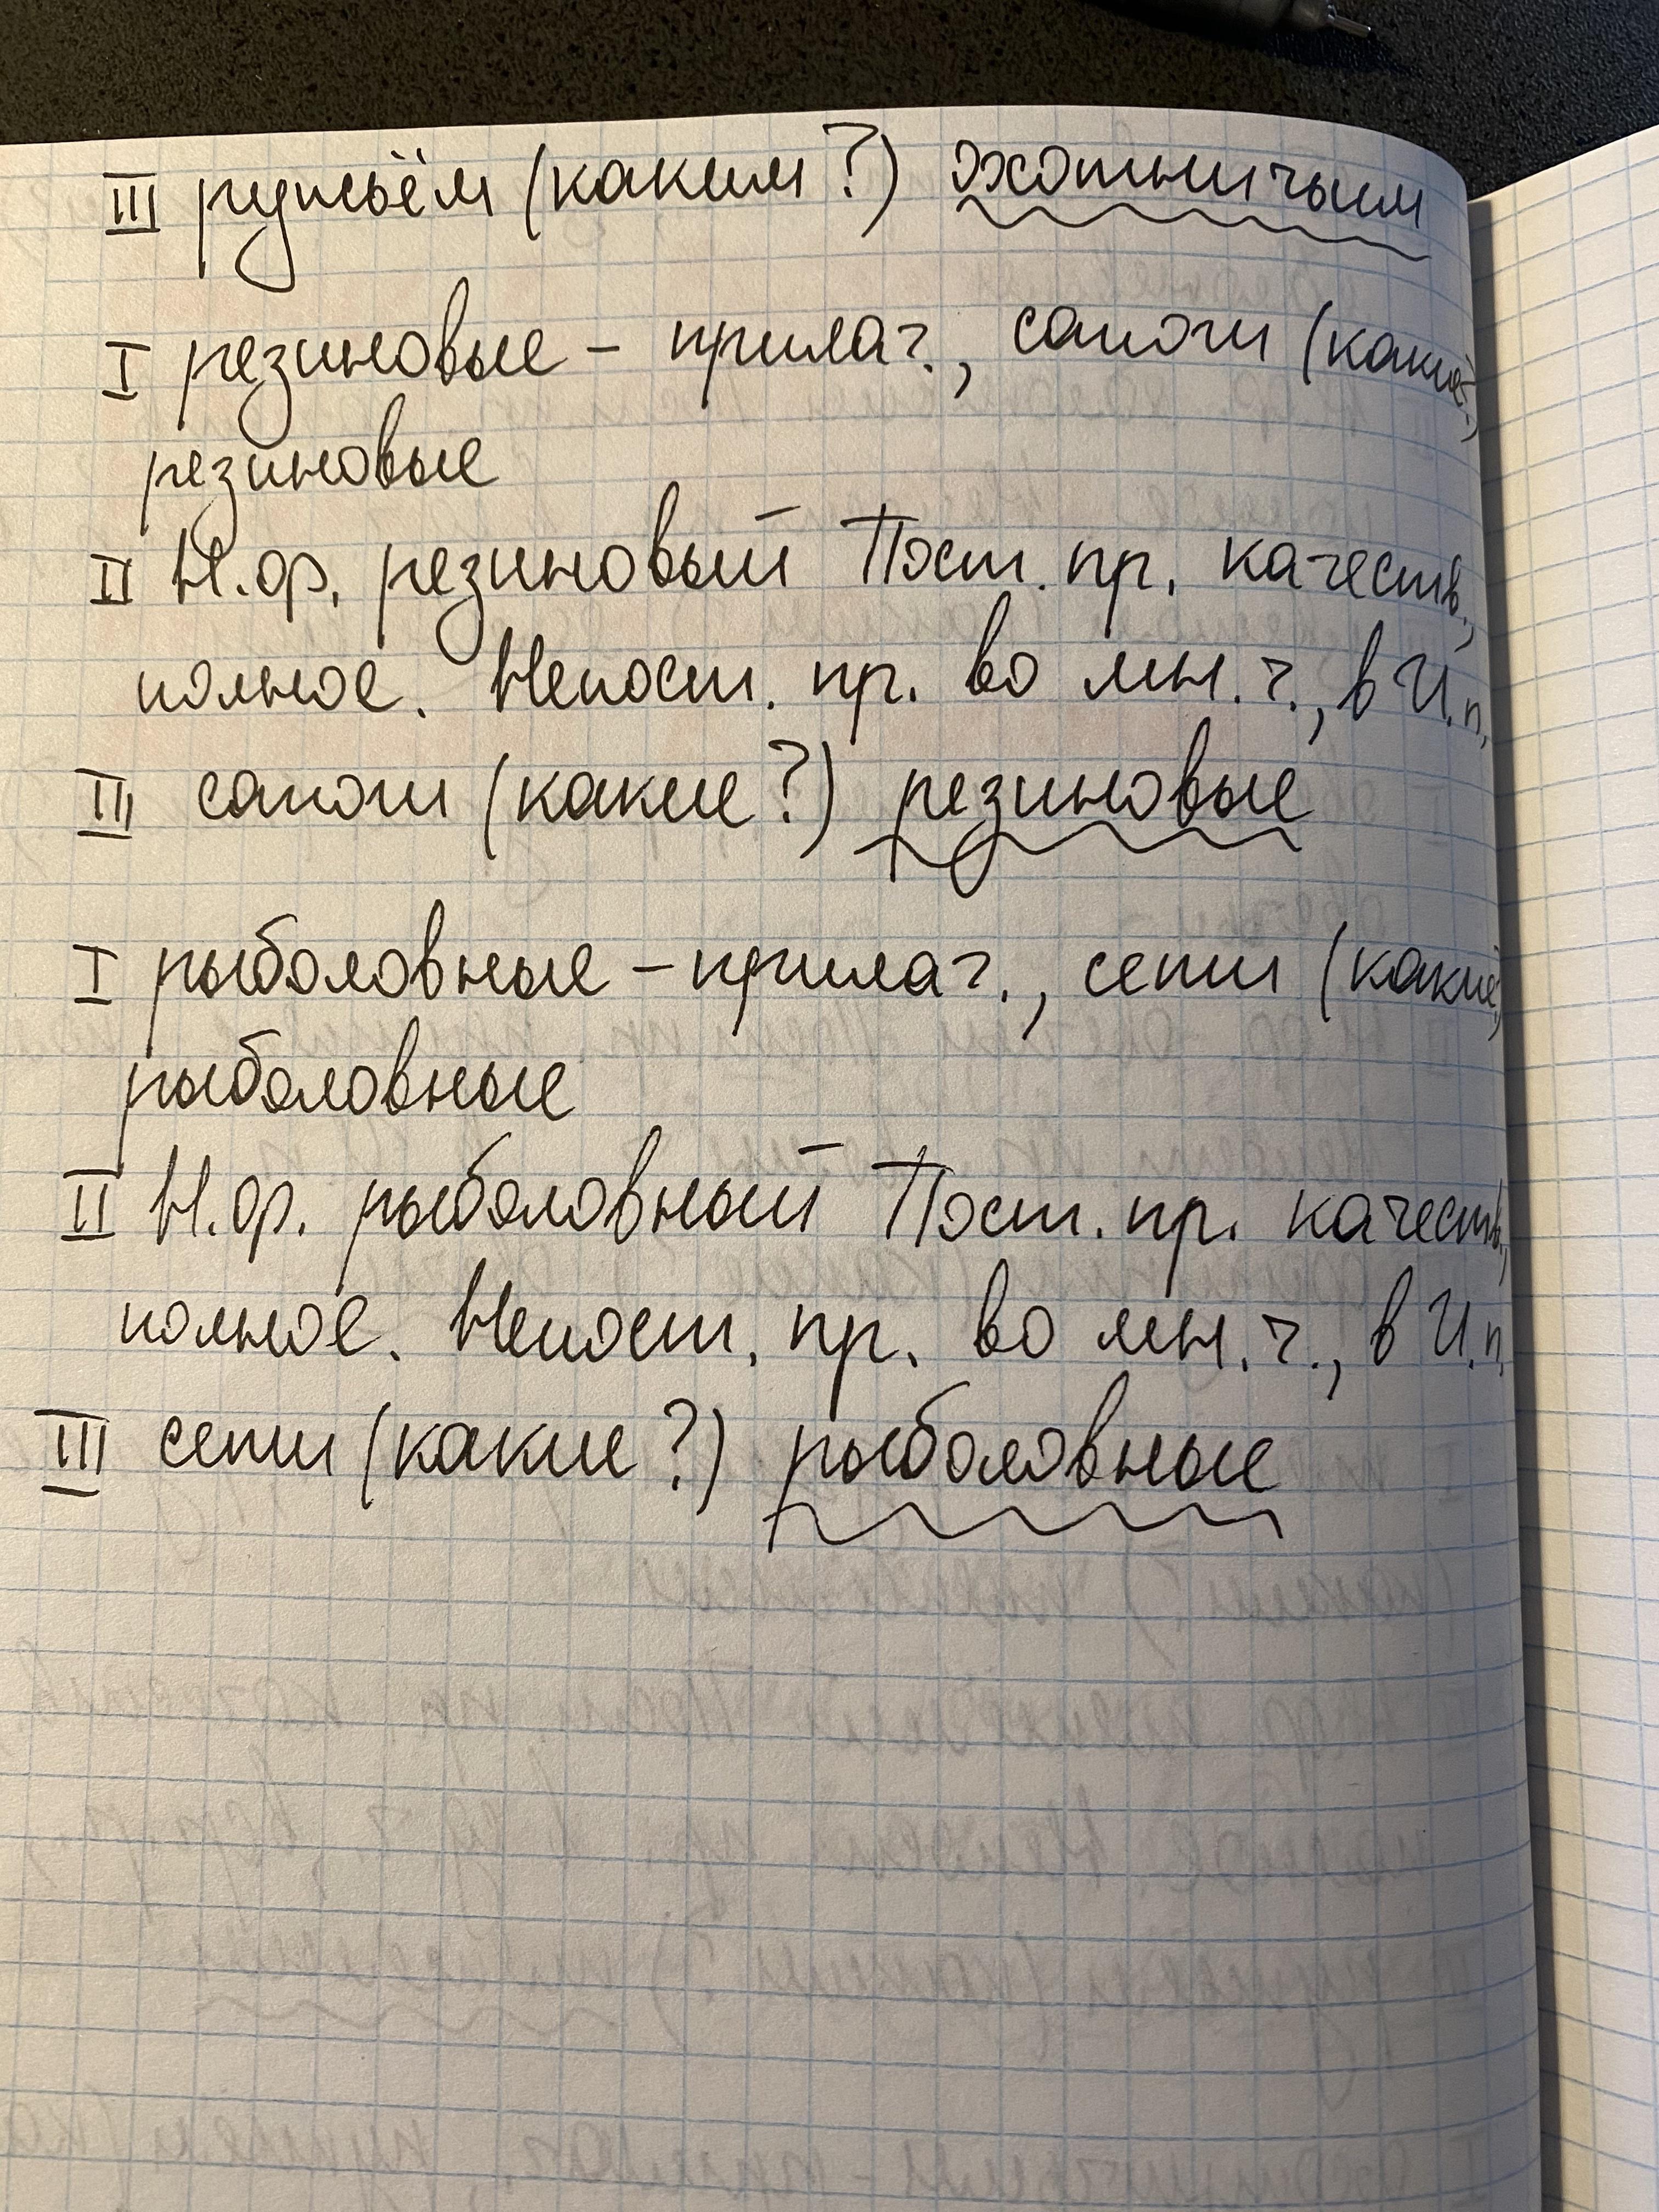 III ружьём (каким?) охотничьим
I резиновые – прилаг., сапоги (какие?)
резиновые
II Н.ф. резиновый Пост. пр. качеств.,
полное. Непост. пр. во мн.ч., в И.п.
III сапоги (какие?) резиновые
I рыболовные – прилаг., сети (какие?)
рыболовные
II Н.ф. рыболовный Пост. пр. качеств.,
полное. Непост. пр. во мн.ч., в И.п.
III сети (какие?) рыболовные